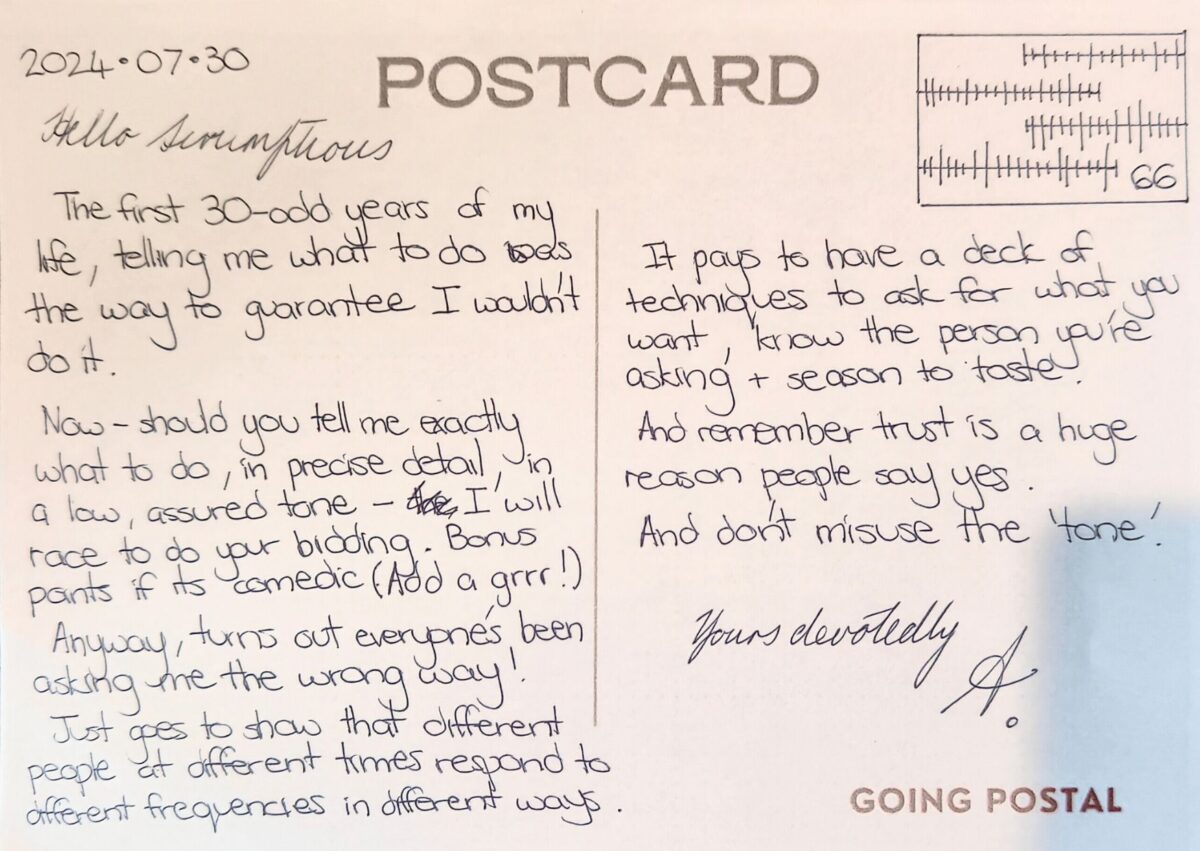 2024·07·30
POSTCARD
66
Hello Scrumptious
The first 30-odd years of my
life, telling me what to do was
the way to guarantee I wouldn't
do it.
Now - should you tell me exactly
what to do, in precise detail, in
a low, assured tone - I will
race to do your bidding. Bonus
points if its comedic (Add a grrr!)
Anyway, turns out everyone's been
asking me the wrong way!
Just goes to show that different
people at different times respond to
different frequencies in different ways.
It pays to have a deck of
techniques to ask for what you
want, 'know the person you're
asking' + season to 'taste'.
And remember trust is a huge
reason people say yes.
And don't misuse the 'tone'.
Yours devotedly
A.
GOING POSTAL